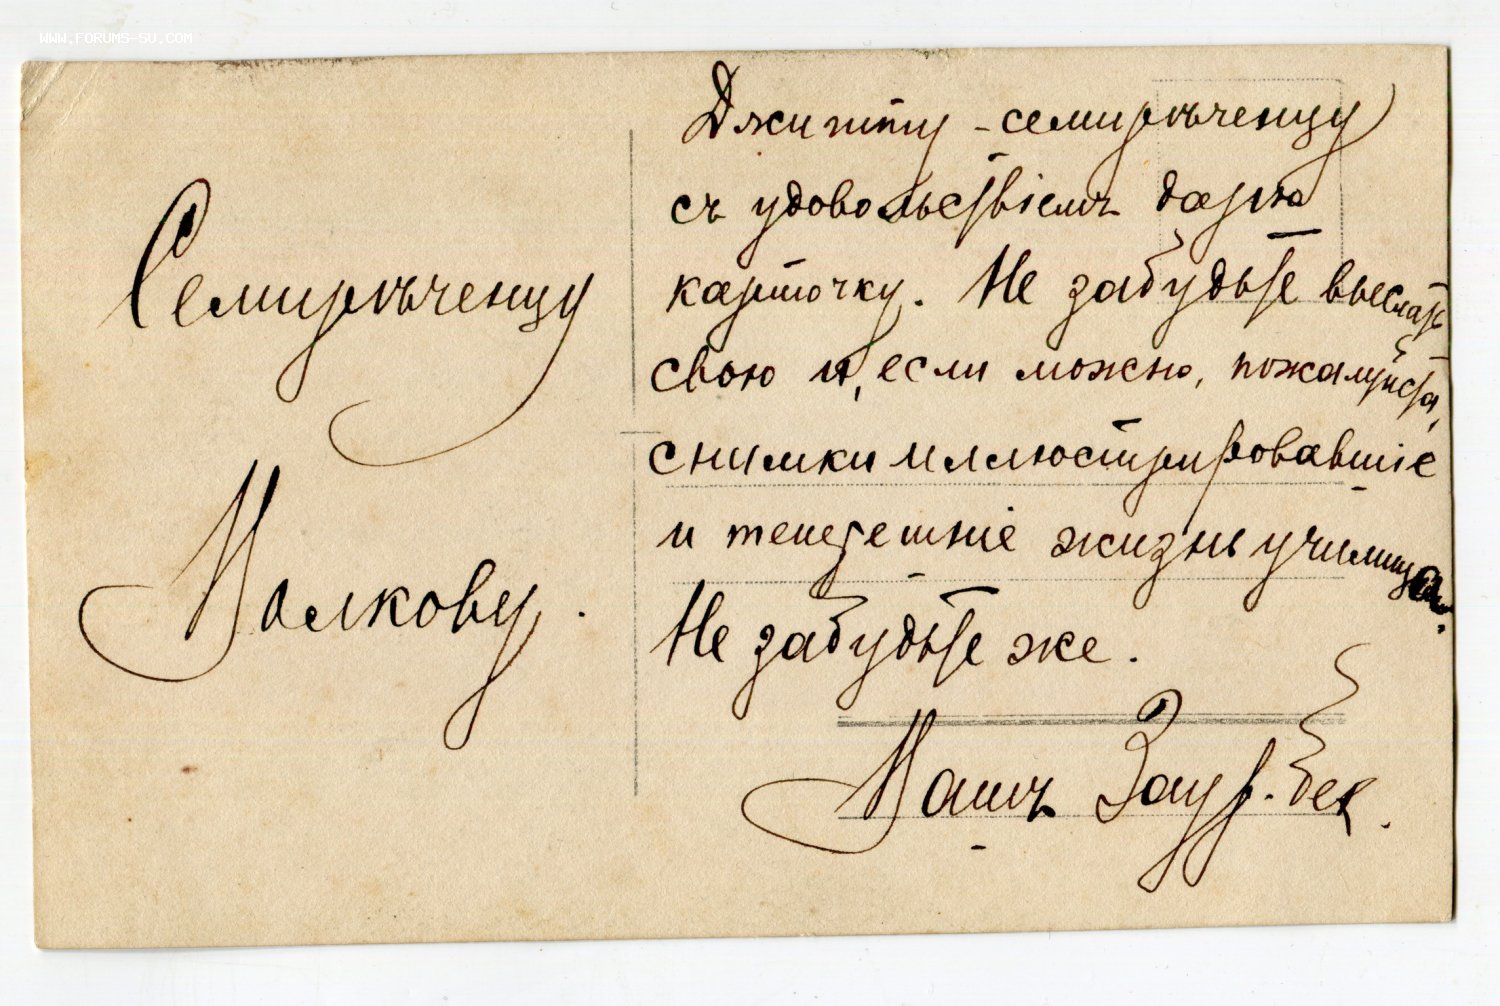 WWW.FORUMS-SU.COM
Семирѣченцу
Волкову.
Джигиту - семирѣченцу
съ удовольствіемъ дарю
карточку. Не забудьте выслать
свою и, если можно, пожалуйста,
снимки иллюстрировавшіе
и теперешніе жизнь училища.
Не забудьте же.
Вашъ Заур-бек.